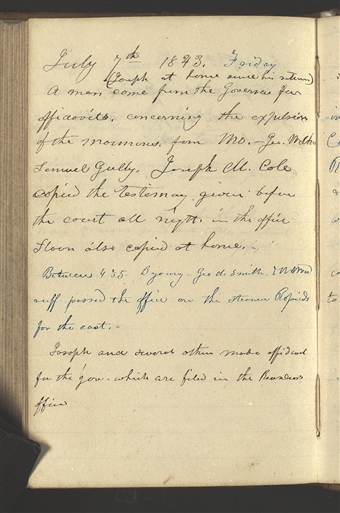 July 7th 1843. Friday
(Joseph at home since his return)
A man come from the Governor for
affidavits, concerning the expulsion
of the mormons from Mo. - Geo. Walker
Samuel Gully, Joseph M. Cole
copied the testemony given before
the court all night. in the office
Sloan also copied at home.
Between 4 & 5 B young - Geo. A. Smith. & W. Wood
ruff passed the office on the steamer Rapids
for the east. -
Joseph and several others made affidavid
for the gov. which are filed in the Recorders
office